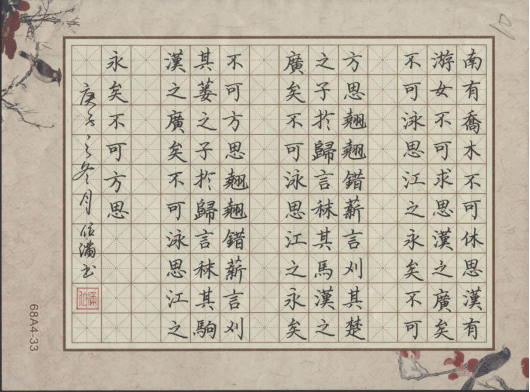 南有喬木不可休思漢有
游女不可求思漢之廣矣
不可泳思江之永矣不可
方思翹翹錯薪言刈其楚
之子於歸言秣其馬漢之
廣矣不可泳思江之永矣
不可方思翹翹錯薪言刈
其蔞之子於歸言秣其駒
漢之廣矣不可泳思江之
永矣不可方思
庚子之冬月伍滿书
68A4-33